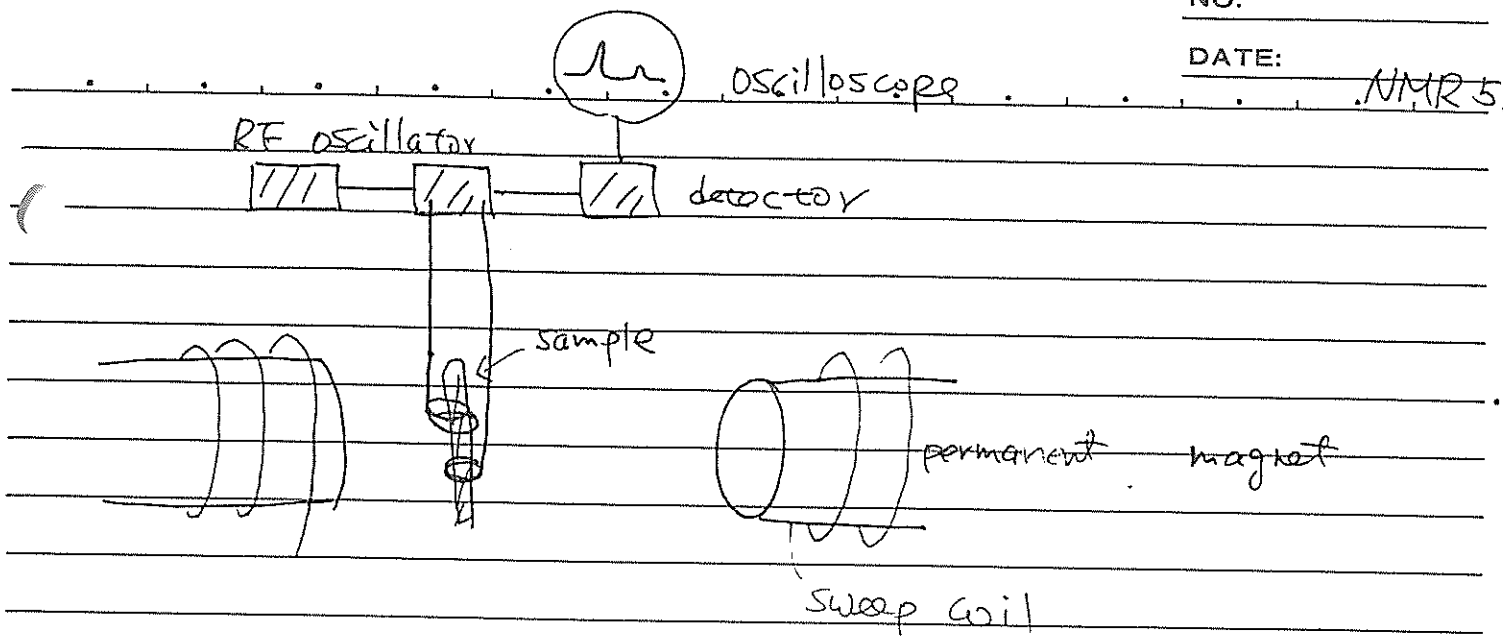 NO.
DATE:
NMR 5.
oscilloscope
RF oscillator
detector
sample
permanent magnet
sweep coil